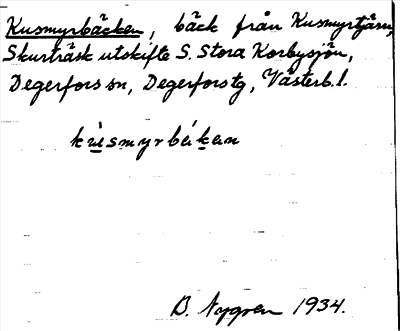 Kusmyrbäcken, bäck från Kusmyrtjärn,
Skurträsk utskifte S. Stora Korbysjön,
Degerfors sn, Degerforstg, Västerb.l.
kùsmyrbä́kan
B. Nygren 1934.